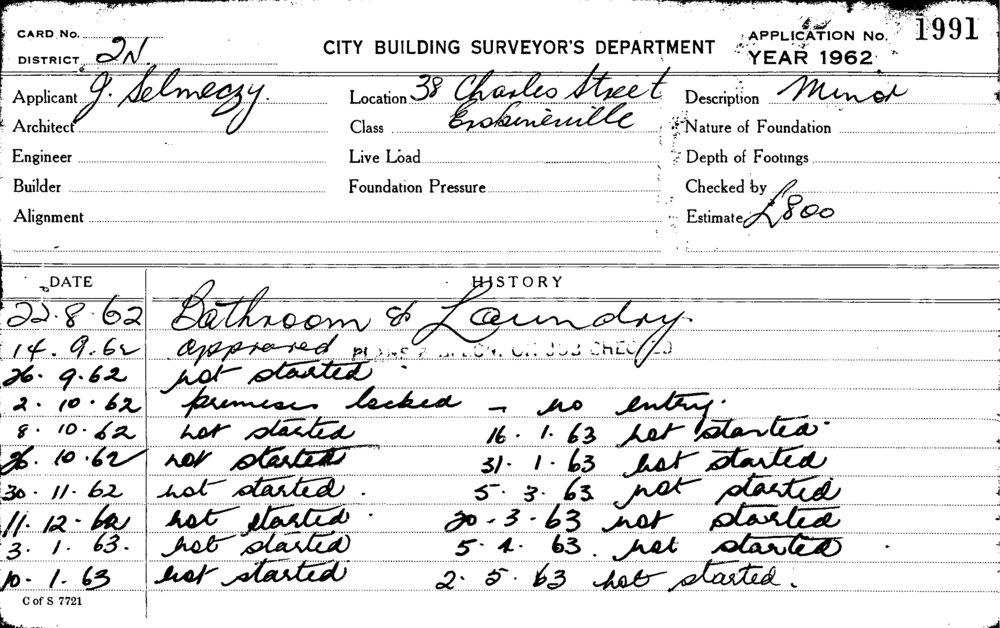 CARD No.
DISTRICT 2N.
CITY BUILDING SURVEYOR'S DEPARTMENT
APPLICATION No. 1991
YEAR 1962
Applicant J. Selmeczy. Location 38 Charles Street Description Minor
Architect Class Erskineville Nature of Foundation
Engineer Live Load Depth of Footings
Builder Foundation Pressure Checked by
Alignment Estimate £800
DATE HISTORY
22.8.62 Bathroom & Laundry.
14.9.62 approved PLANS & SPECN. ON JOB CHECKED
26.9.62 not started
2.10.62 premises locked - no entry.
8.10.62 not started 16.1.63 not started
26.10.62 not started 31.1.63 not started
30.11.62 not started. 5.3.63 not started
11.12.62 not started 20.3.63 not started
3.1.63. not started 5.4.63. not started.
10.1.63 not started 2.5.63 not started.
C of S 7721